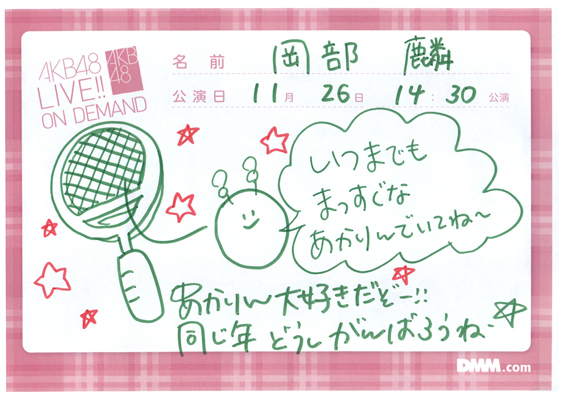 AKB48
LIVE!!
ON DEMAND
AKB
48
名前 岡部 麟
公演日 11月 26日 14:30公演
いつまでも
まっすぐな
あかりんでいてね〜
あかりん大好きだぞー!!
同じ年どうしがんばろうね
DMM.com